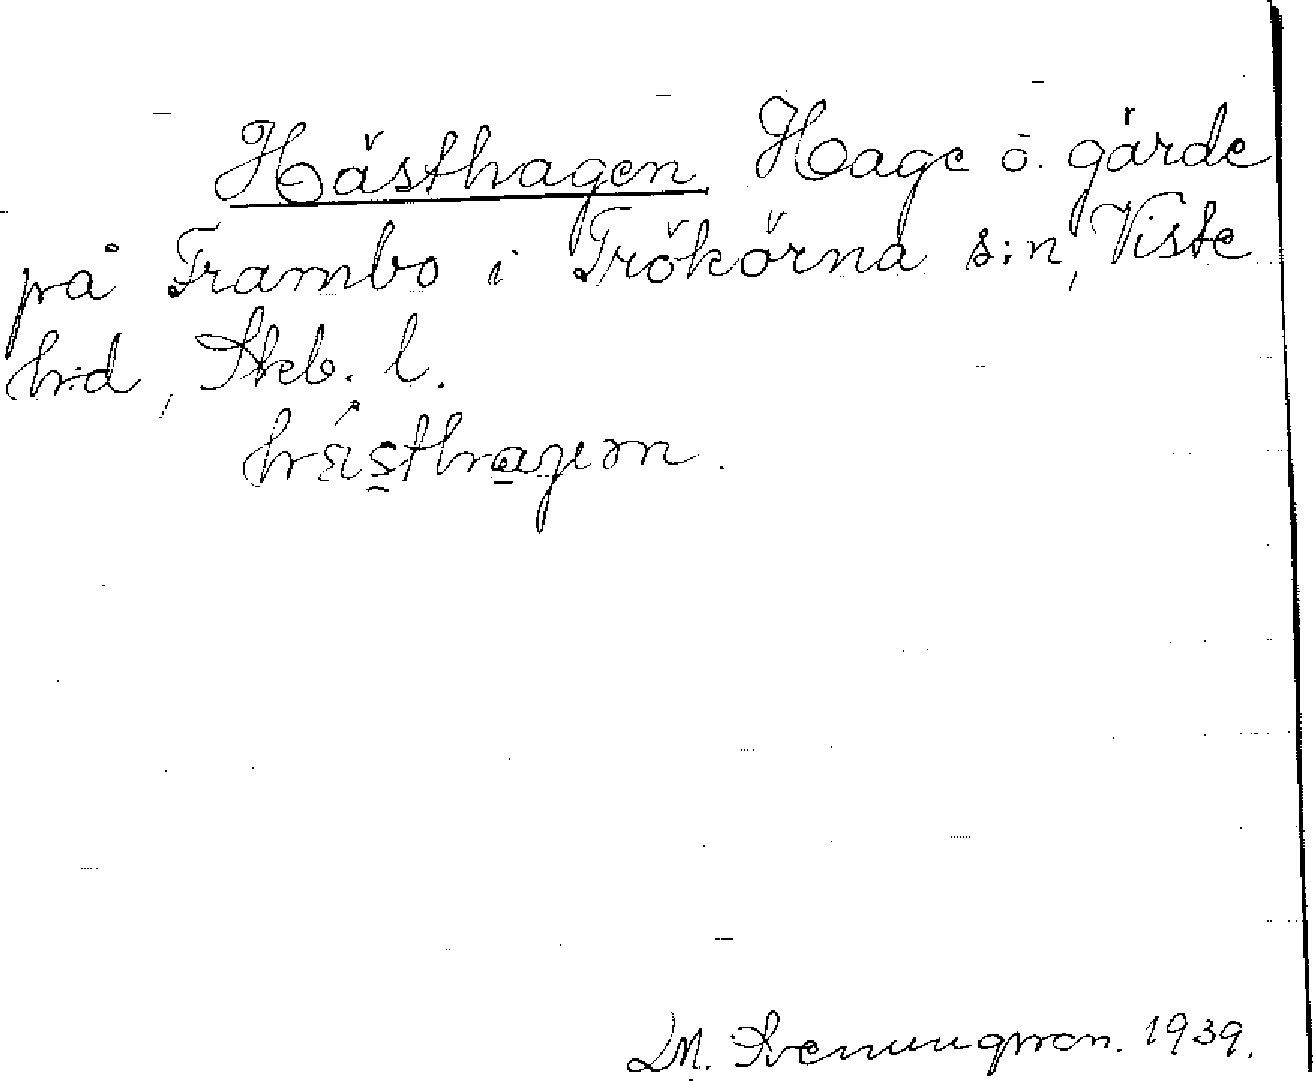 Hästhagen Hage o. gärde
på Frambo i Trökörna s:n, Viste
h:d, Skb. l.
M. Svenungsson. 1939.